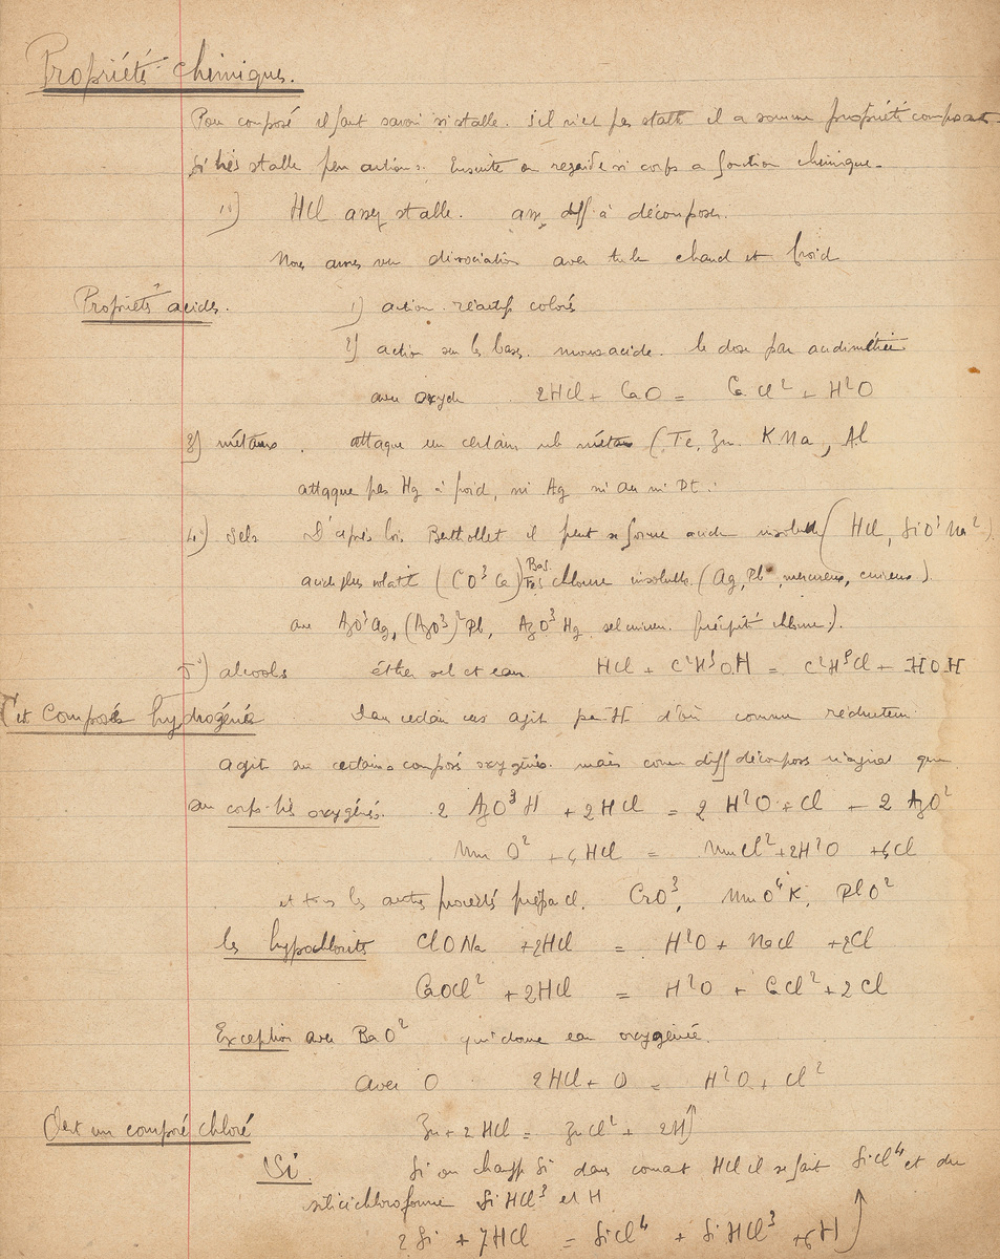 Propriétés chimiques.
Pour composé il faut savoir si stable. S'il n'est pas stable il a comme propriété composant
Si très stable peu actions. Ensuite on regarde si corps a fonction chimique.
1°) HCl assez stable. assez diff. à décomposer.
Nous avons vu dissociation avec tube chaud et froid
Propriétés acides. 1) action réactifs colorés
2) action sur les bases. monoacide. le dose par acidimétrie
avec oxyde 2HCl + CaO = CaCl² + H²O
3) métaux. attaque un certain nb métaux (Fe, Zn. K Na, Al
attaque pas Hg à froid, ni Ag ni Au ni Pt.
4°) Sels D'après loi Berthollet il peut se former acide insoluble (HCl, SiO³Na²)
acide plus volatil (CO³Ca) chlorure insoluble (Ag, Pb, mercureux, cuivreux)
avec AzO³Ag, (AzO³)²Pb, AzO³Hg, sel cuivreux. précipité chlorure).
5°) alcools éther sel et eau HCl + C²H⁵OH = C²H⁵Cl + HOH
C'est Composé hydrogéné Dans certain cas agit par H d'où comme réducteur
agit sur certains composés oxygénés. mais comme diff décomposer n'agira que
sur corps très oxygénés. 2 AzO³H + 2HCl = 2 H²O + Cl + 2 AzO²
MnO² + 4HCl = MnCl² + 2H²O + 2Cl
et tous les autres procédés prépa Cl. CrO³, MnO⁴K, PbO²
les hypochlorites ClONa + 2HCl = H²O + NaCl + 2Cl
CaOCl² + 2HCl = H²O + CaCl² + 2Cl
Exception avec BaO² qui donne eau oxygénée.
Avec O 2HCl + O = H²O + Cl²
C'est un composé chloré Zn + 2HCl = ZnCl² + 2H
Si Si on chauffe Si dans courant HCl il se fait SiCl⁴ et du
silicichloroforme SiHCl³ et H
2Si + 7HCl = SiCl⁴ + SiHCl³ + 6H